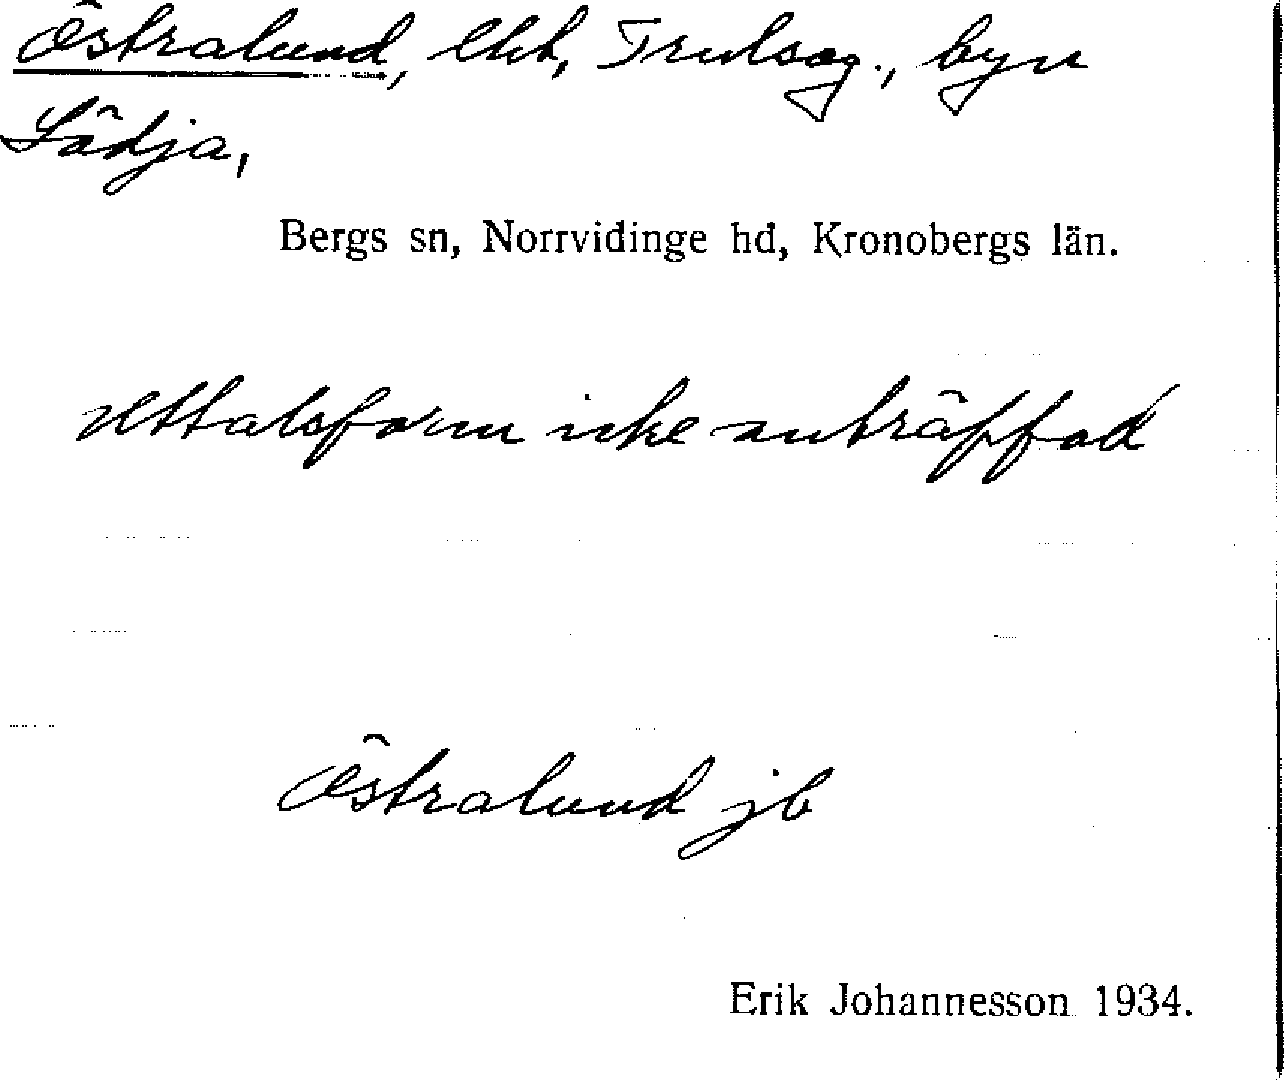 Östralund, lht, Trulsag., byn
Lädja,
Bergs sn, Norrvidinge hd, Kronobergs län.
Uttalsform icke anträffad
Östralund jb
Erik Johannesson 1934.